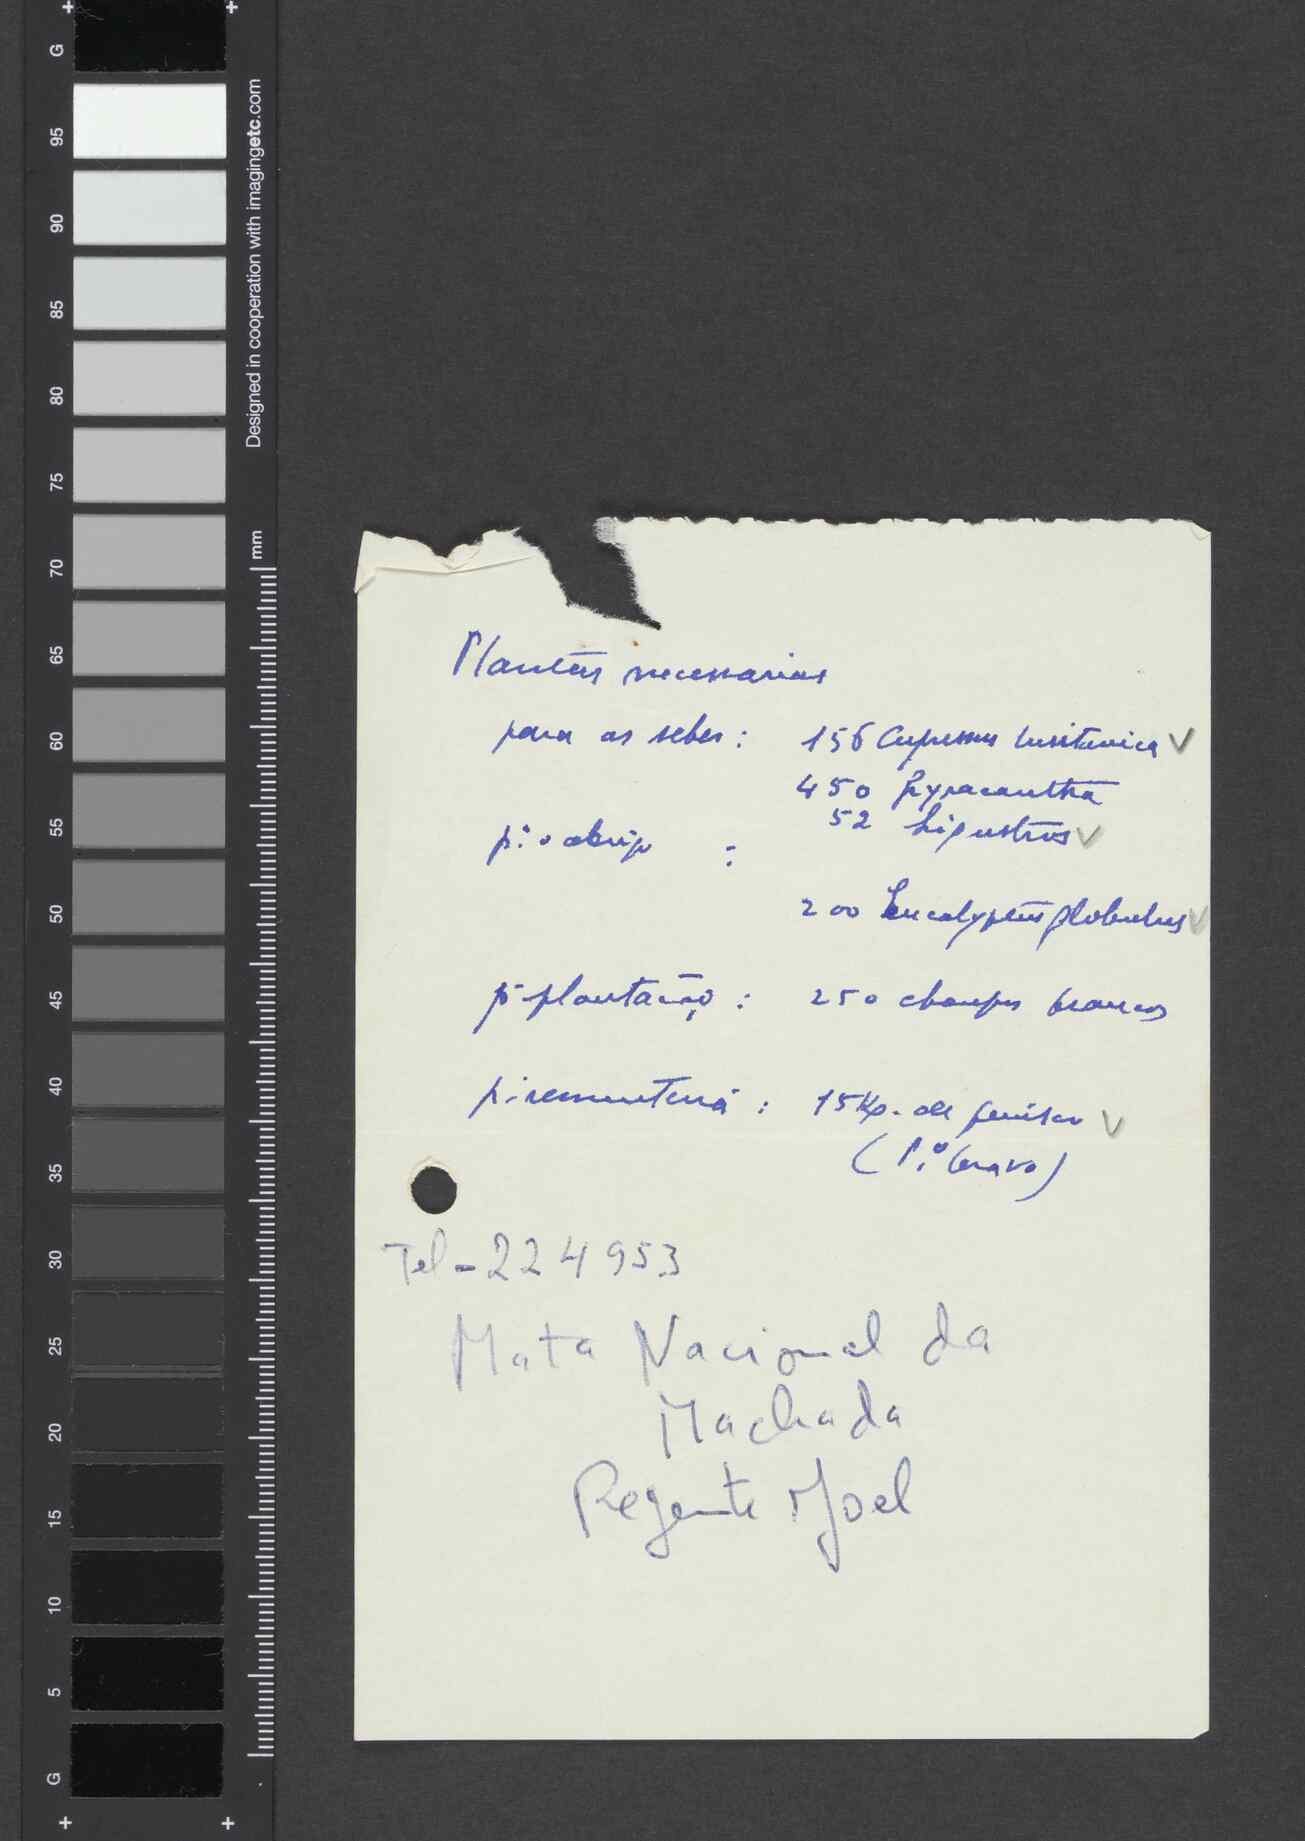 G
95
90
85
80
75
70
65
60
55
50
45
40
35
30
25
20
15
10
5
G
Designed in cooperation with imagingetc.com
mm
Plantas necessarias
para as sebes : 156 Cupressus lusitanica
450 Pyracantha
52 Ligustros
p.ª o abrigo :
200 Eucalyptus globulus
pª plantação : 250 choupos brancos
p. : 15 Kg. de penisco
(P.º bravo)
Tel - 224953
Mata Nacional da
Machada
Regente Joel